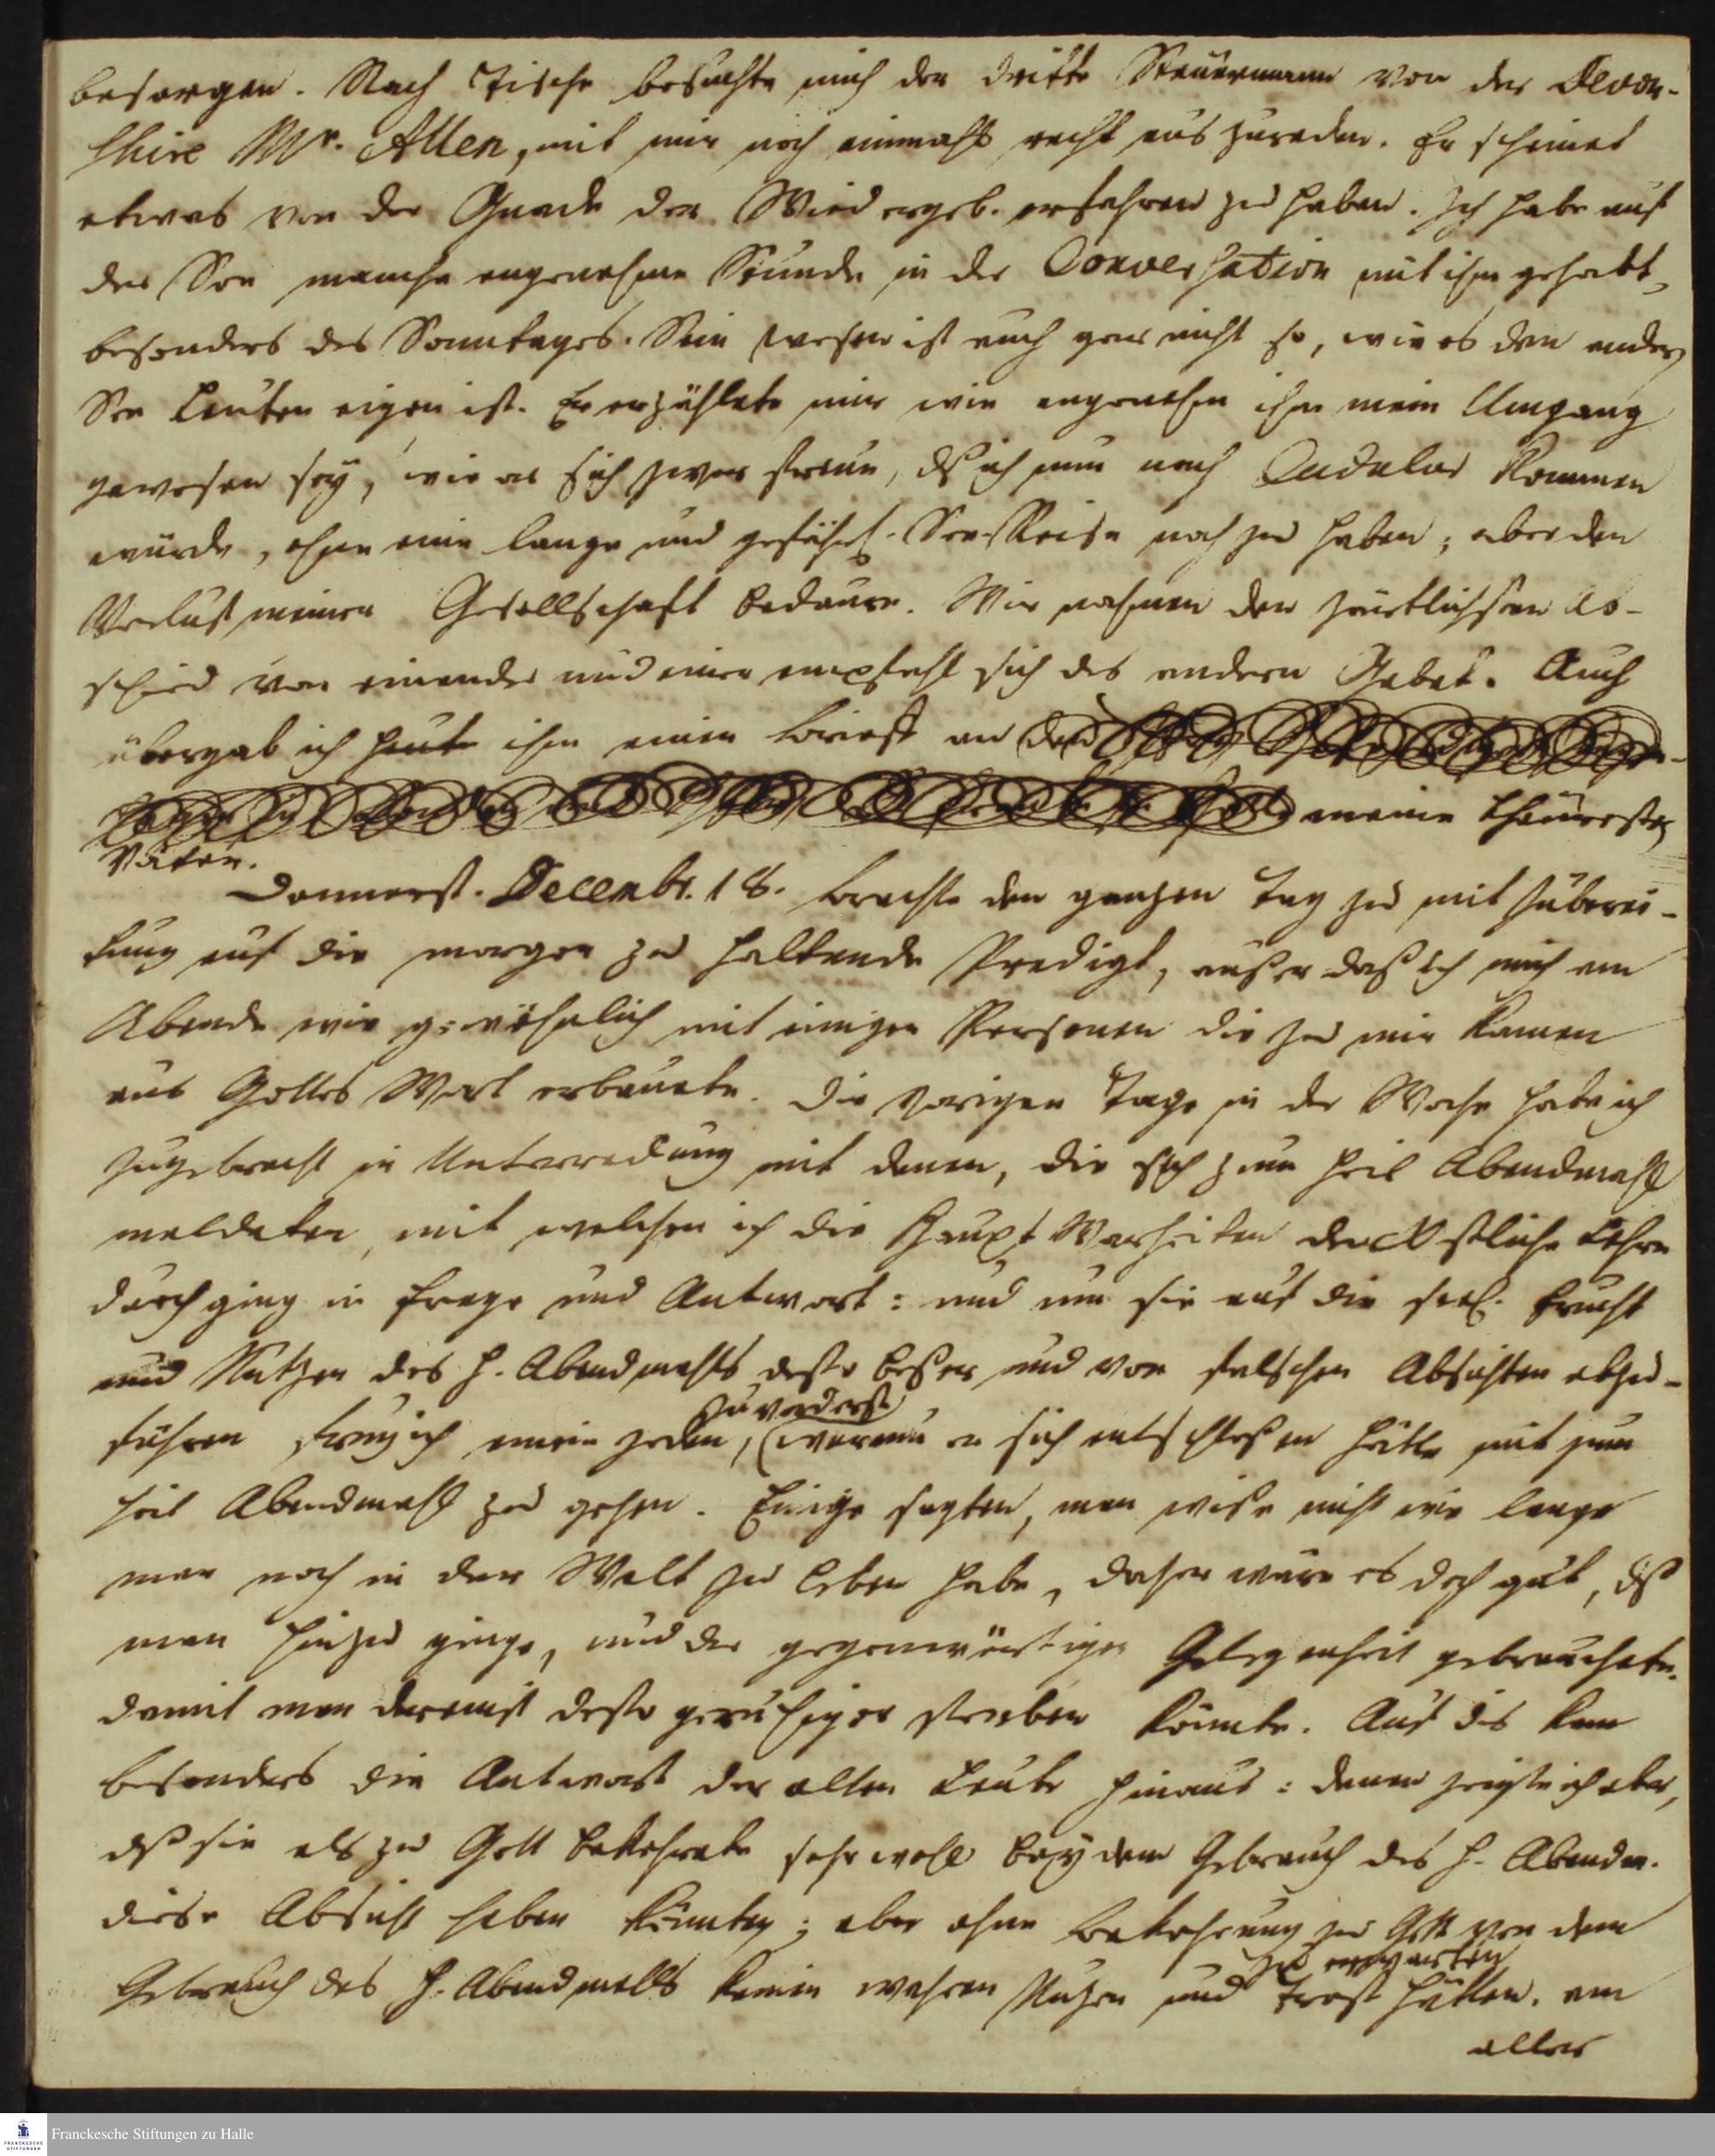 besorgen. Nach Tische besuchte mich der dritte Steuermann von der Devon-
shire Mr. Allen, mit mir noch einmahl recht aus zureden. Er scheinet
etwas von der Gnade der Wiedergeb. erfahren zu haben. Ich habe auf
der See manche angenehme Stunde in der Conversation mit ihm gehabt,
besonders des Sonntages. Sein Wesen ist auch gar nicht so, wie es den andern
See Leuten eigen ist. Er erzählete mir wie angenehm ihm mein Umgang
gewesen sey, wie er sich zwar freue, dß ich nun nach Cudulur kommen
würde, ohne eine lange und gefährl. See-Reise noch zu haben; aber den
Verlust meiner Gesellschaft bedaure. Wir nahmen den zärtlichsten Ab-
schied von einander und einer empfahl sich des andern Gebet. Auch
übergab ich heute ihm einen Brieff an
meine theuersten
Väter.
Donnerst. Decembr. 18. brachte den ganzen Tag zu mit Zuberei-
tung auf die morgen zu haltende Predigt, außer daß ich mich am
Abende wie gewöhnlich mit einigen Personen die zu mir kamen
aus Gottes Wort erbauete. Die vorigen Tage in der Woche habe ich
zugebracht in Unterredung mit denen, die sich zum heil Abendmahl
meldeten, mit welchen ich die Haupt Warheiten der Xstliche Lehre
durchging in Frage und Antwort: und um sie auf die seel. Frucht
und Nutzen des H. Abendmahls desto beßer und von falschen Absichten abzu-
führen frug ich einen jeden, zuvorderst warum er sich entschloßen hätte mit zum
heil Abendmahl zu gehen. Einige sagten, man wiße nicht wie lange
man noch in der Welt zu leben habe, daher wäre es doch gut, dß
man hinzu ginge, und der gegenwärtigen Gelegenheit gebrauchete.
damit man dereinst desto geruhiger sterben könnte. Auf dis kam
besonders die Antwort der alten Leute hinaus: denen zeigte ich aber,
dß sie als zu Gott bekehrete sehr wohl bey dem Gebrauch des H. Abendm.
diese Absicht haben könnten; aber ohne Bekehrung zu Gott von dem
Gebrauch des H. Abendmahls keinen wahren Nuzen und Trost zu erwarten hätten. am
aller
Franckesche Stiftungen zu Halle